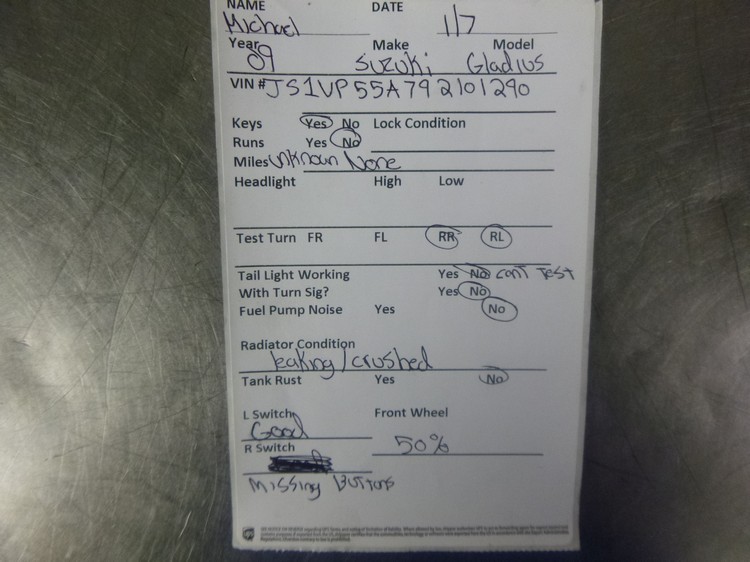 NAME DATE
Michael 1/7
Year Make Model
09 Suzuki Gladius
VIN # JS1VP55A792101290
Keys Yes No Lock Condition
Runs Yes No
Miles unknown None
Headlight High Low
Test Turn FR FL RR RL
Tail Light Working Yes No cant Test
With Turn Sig? Yes No
Fuel Pump Noise Yes No
Radiator Condition
leaking/crushed
Tank Rust Yes No
L Switch Front Wheel
Good 50%
R Switch
Missing Buttons